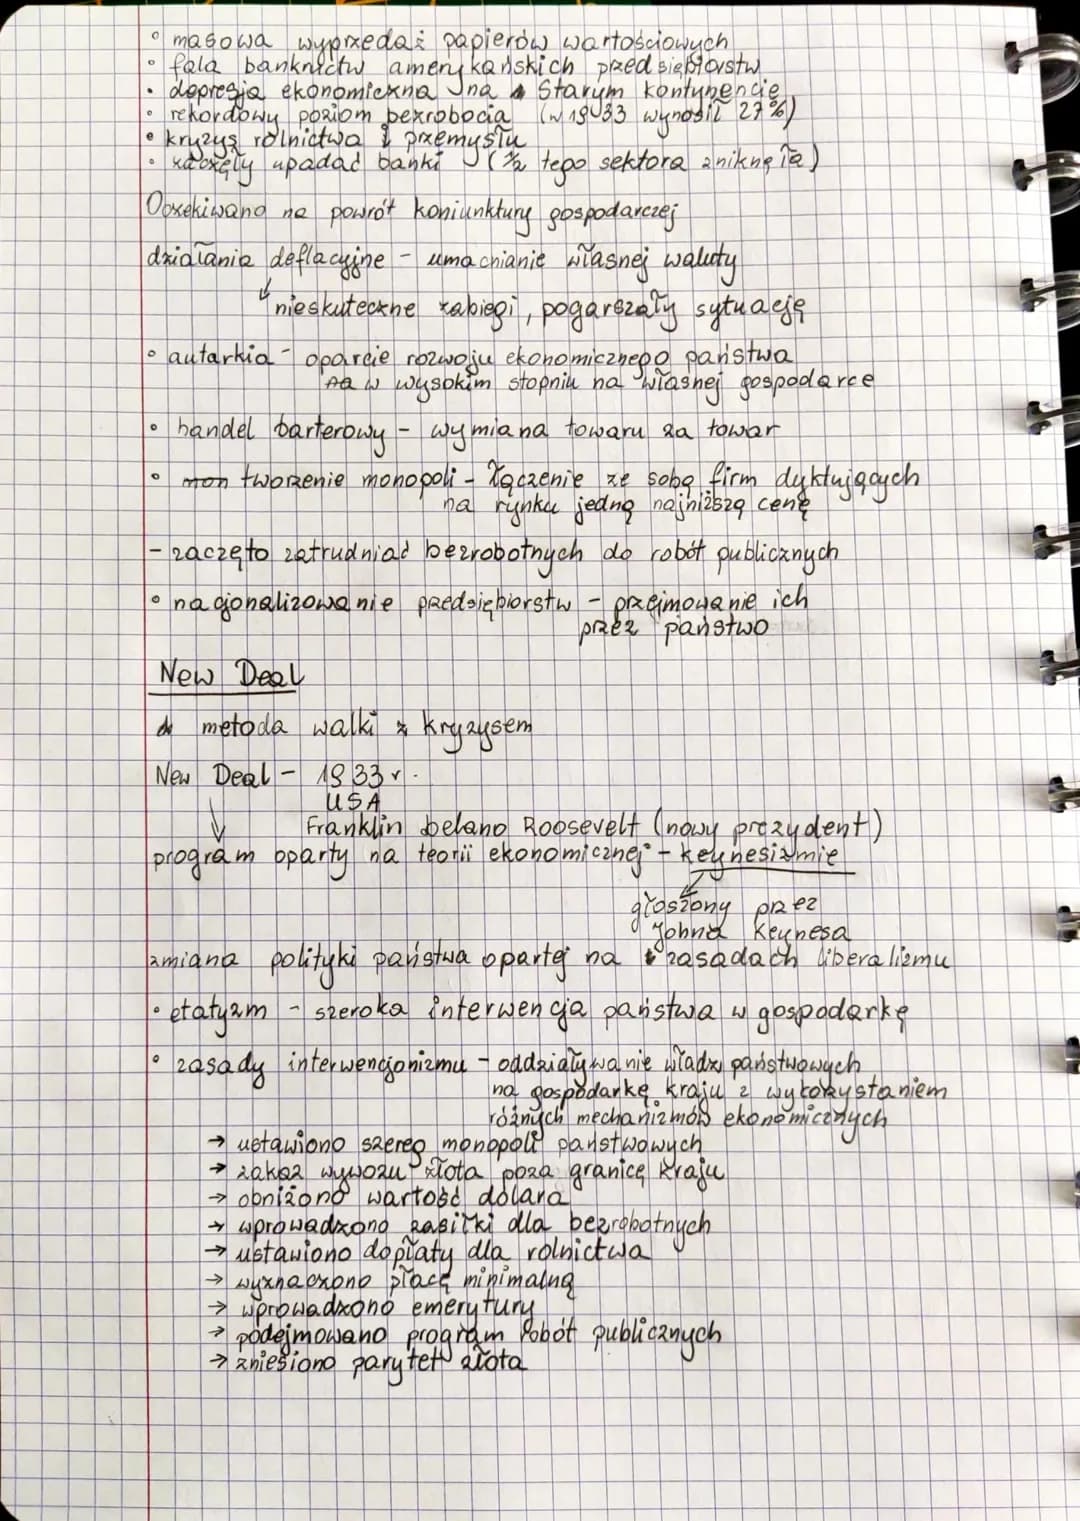 • masowa wyprzedaż papierów wartościowych
• fala banknictw amerykańskich przedsiębiorstw
• depresja ekonomiczna na Starym kontynencie
• rekordowy poziom bezrobocia (w 1933 wynosił 27%)
• kryzys rolnictwa i przemysłu
• zaczęły upadać banki (½ tego sektora zniknęła)
Oczekiwano na powrót koniunktury gospodarczej
działania deflacyjne - umacnianie własnej waluty
↓ nieskuteczne zabiegi, pogarszały sytuację
• autarkia - oparcie rozwoju ekonomicznego państwa
w wysokim stopniu na własnej gospodarce
• handel barterowy - wymiana towaru za towar
• mon tworzenie monopoli - łączenie ze sobą firm dyktujących
na rynku jedną najniższą cenę
- zaczęto zatrudniać bezrobotnych do robót publicznych
• nacjonalizowanie przedsiębiorstw - przejmowanie ich
przez państwo
New Deal
metoda walki z kryzysem
New Deal - 1933 r.
USA
↓ Franklin Delano Roosevelt (nowy prezydent)
program oparty na teorii ekonomicznej - keynesizmie
głoszony przez
Johna Keynesa
zmiana polityki państwa opartej na zasadach liberalizmu
• etatyzm - szeroka interwencja państwa w gospodarkę
• zasady interwencjonizmu - oddziaływanie władz państwowych
na gospodarkę kraju z wykorzystaniem
różnych mechanizmów ekonomicznych
→ ustawiono szereg monopoli państwowych
→ zakaz wywozu złota poza granicę kraju
→ obniżono wartość dolara
→ wprowadzono zasiłki dla bezrobotnych
→ ustawiono dopłaty dla rolnictwa
→ wyznaczono płacę minimalną
→ wprowadzono emerytury
→ podejmowano program robót publicznych
→ zniesiono parytet złota